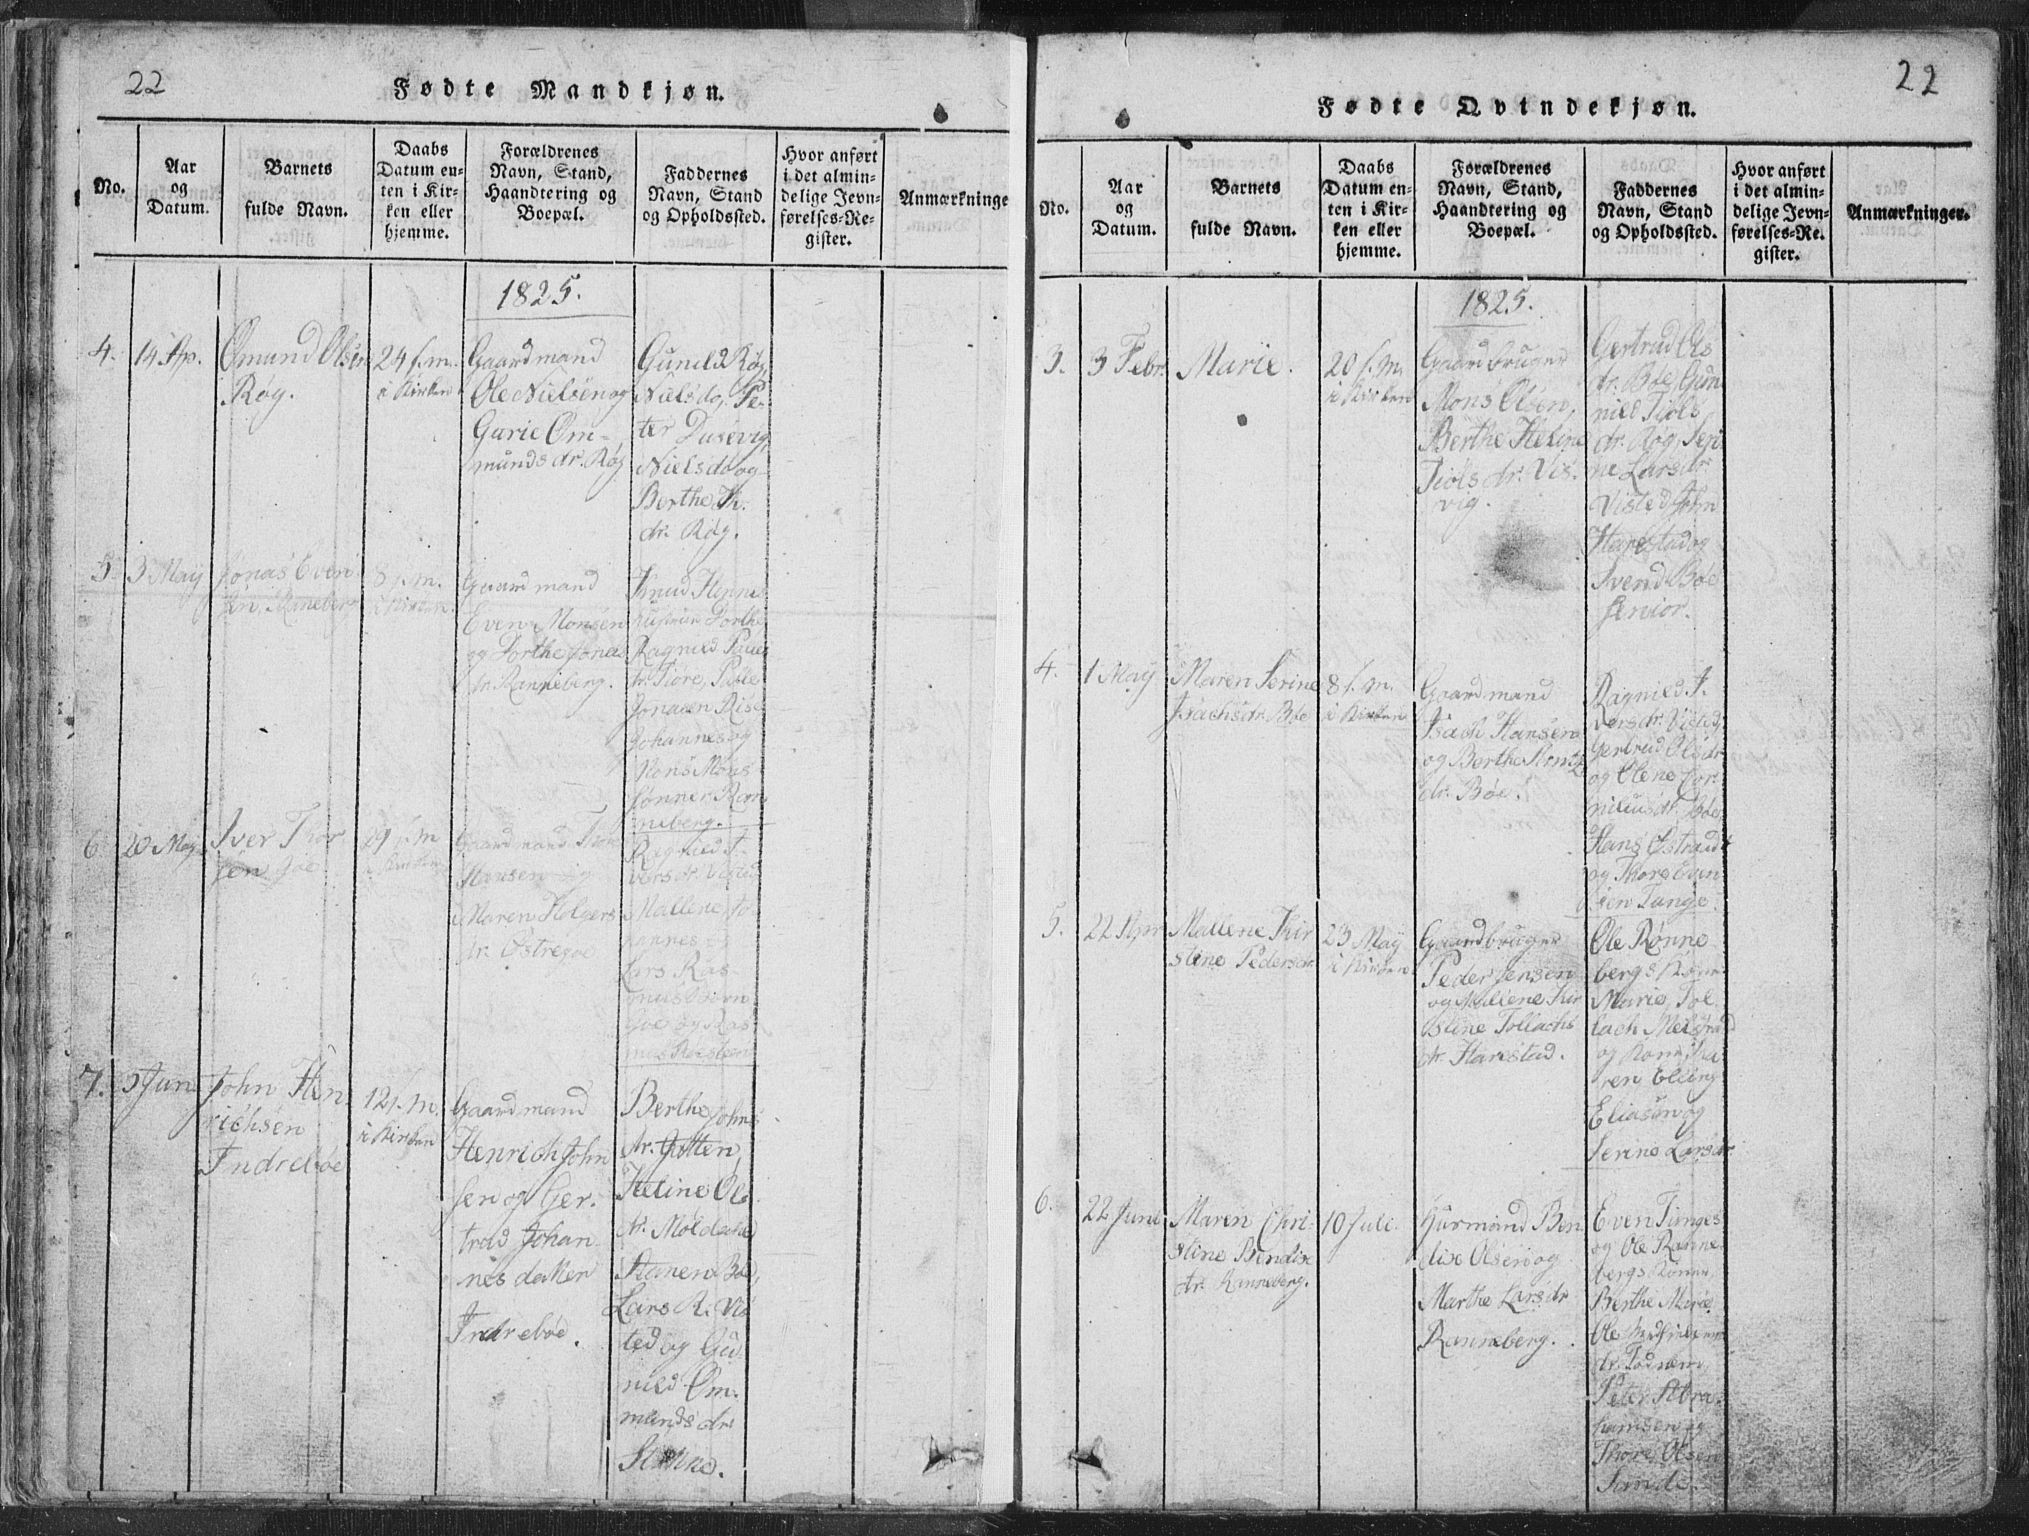 22
Fødte Mandkjøn.
No.
Aar
og
Datum.
Barnets
fulde Navn.
Daabs
Datum en-
ten i Kir-
ken eller
hjemme.
Forældrenes
Navn, Stand,
Haandtering og
Boepæl.
Faddernes
Navn, Stand
og Opholdssted.
Hvor anført
i det almin-
delige Jevn-
førelses-Re-
gister.
Anmærkninge
1825.
4.
14 Ap.
Ømund Olsen
Røg.
24 f. m.
i Kirken
Gaardmand
Ole Nielsen og
Gurie Øm-
munds dr. Røg
Guneld Røg,
Nielsdr, Pe-
ter Dusevig,
Nielsdr og
Berthe Th.
dr. Røg.
5.
3 May
Jonas Even
sen Ranneberg
8 f. m.
i Kirken.
Gaardmand
Even Monsen
og Dorthe Jonas
dr. Ranneberg.
Knud Henne
Dorthe,
Ragnild
dr. Tiøre, Palle
Jonasen Rise
Johannes og
Mons Mons
sønner Ran
neberg.
6
20 May
Iver Thor
sen Goe
29 f. m
i Kirken
Gaardmand Thor
Hansen og
Maren Holgers
dr. Østregoe
Ragnild I-
versdr. Visted
Mallene, Jo-
hannes og
Lars Ras-
mus Biørn
Goe og Ras-
mus
7.
5 Jun
John Hen
richsen
Indrebøe
12 f. m.
i Kirken
Gaardmand
Henrich John
sen og Ger-
trud Johan
nes datter
Indrebøe.
Berthe Johns
dr. Jotten,
Heline Ols
dr. Møldahl
Hanen Bøe,
Lars R. Vis
ted og Gu
nild Øm-
munds dr.
22
Fødte Qvindekjøn.
No.
Aar
og
Datum.
Barnets
fulde Navn.
Daabs
Datum en-
ten i Kir-
ken eller
hjemme.
Forældrenes
Navn, Stand,
Haandtering og
Boepæl.
Faddernes
Navn, Stand
og Opholdssted.
Hvor anført
i det almin-
delige Jevn-
førelses-Re-
gister.
Anmærkninger.
1825.
3.
3 Febr.
Marie.
20 f. m.
i Kirken
Gaardbruger
Mons Olsen,
Berthe Heline
Tiøls dr. Vis-
vig.
Gertrud Ols
dr. Bøe, Gun
niel Tiøls
dr. Røg, Seri
ne Larsdr
Visted John
Harestad og
Svend Bøe
senior.
4.
1 May
Maren Serine
Isachsdr. Bøe
8 f. m.
i Kirken
Gaardmand
Isach Hansen
og Berthe
dr. Bøe.
Ragnild I-
versdr. Visted,
Gertrud Olsdr
og Olene Cor-
neliusdr. Goe,
Hans Østraadt
og Thore Even
sen Tunge.
5.
22 Apr
Mallene Kir
stine Pedersdr.
23 May
i Kirken
Gaardbruger
Peder Jensen
og Mallene Kir
stine Tollachs
dr. Harestad.
Ole Rønne
bergs Kone
Marie, Tol
lach Meland
og Kone, Ka
ren Elling
Eliasen og
Serine Larsdr
6.
22 Juni
Maren Chri-
stine Bendix
dr. Ranneberg.
10 Juli.
Huusmand Ben
dix Olsen og
Marthe Larsdr
Ranneberg.
Even Tunges
og Ole Ranne
bergs Koner
Berthe Marie
Ole
dr. Todnem,
Peter Abra
hamsen og
Thore Olsen
Sande.